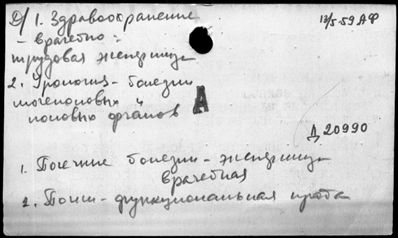 Д/ 1. Здравоохранение
13/5-59 АФ
- врачебно -
трудовая экспертиза
2. Урология - болезни
мочеполовых и
половых органов
А
Д 20990
1. Почечные болезни - экспертиза
врачебная
2. Почки - функциональная проба